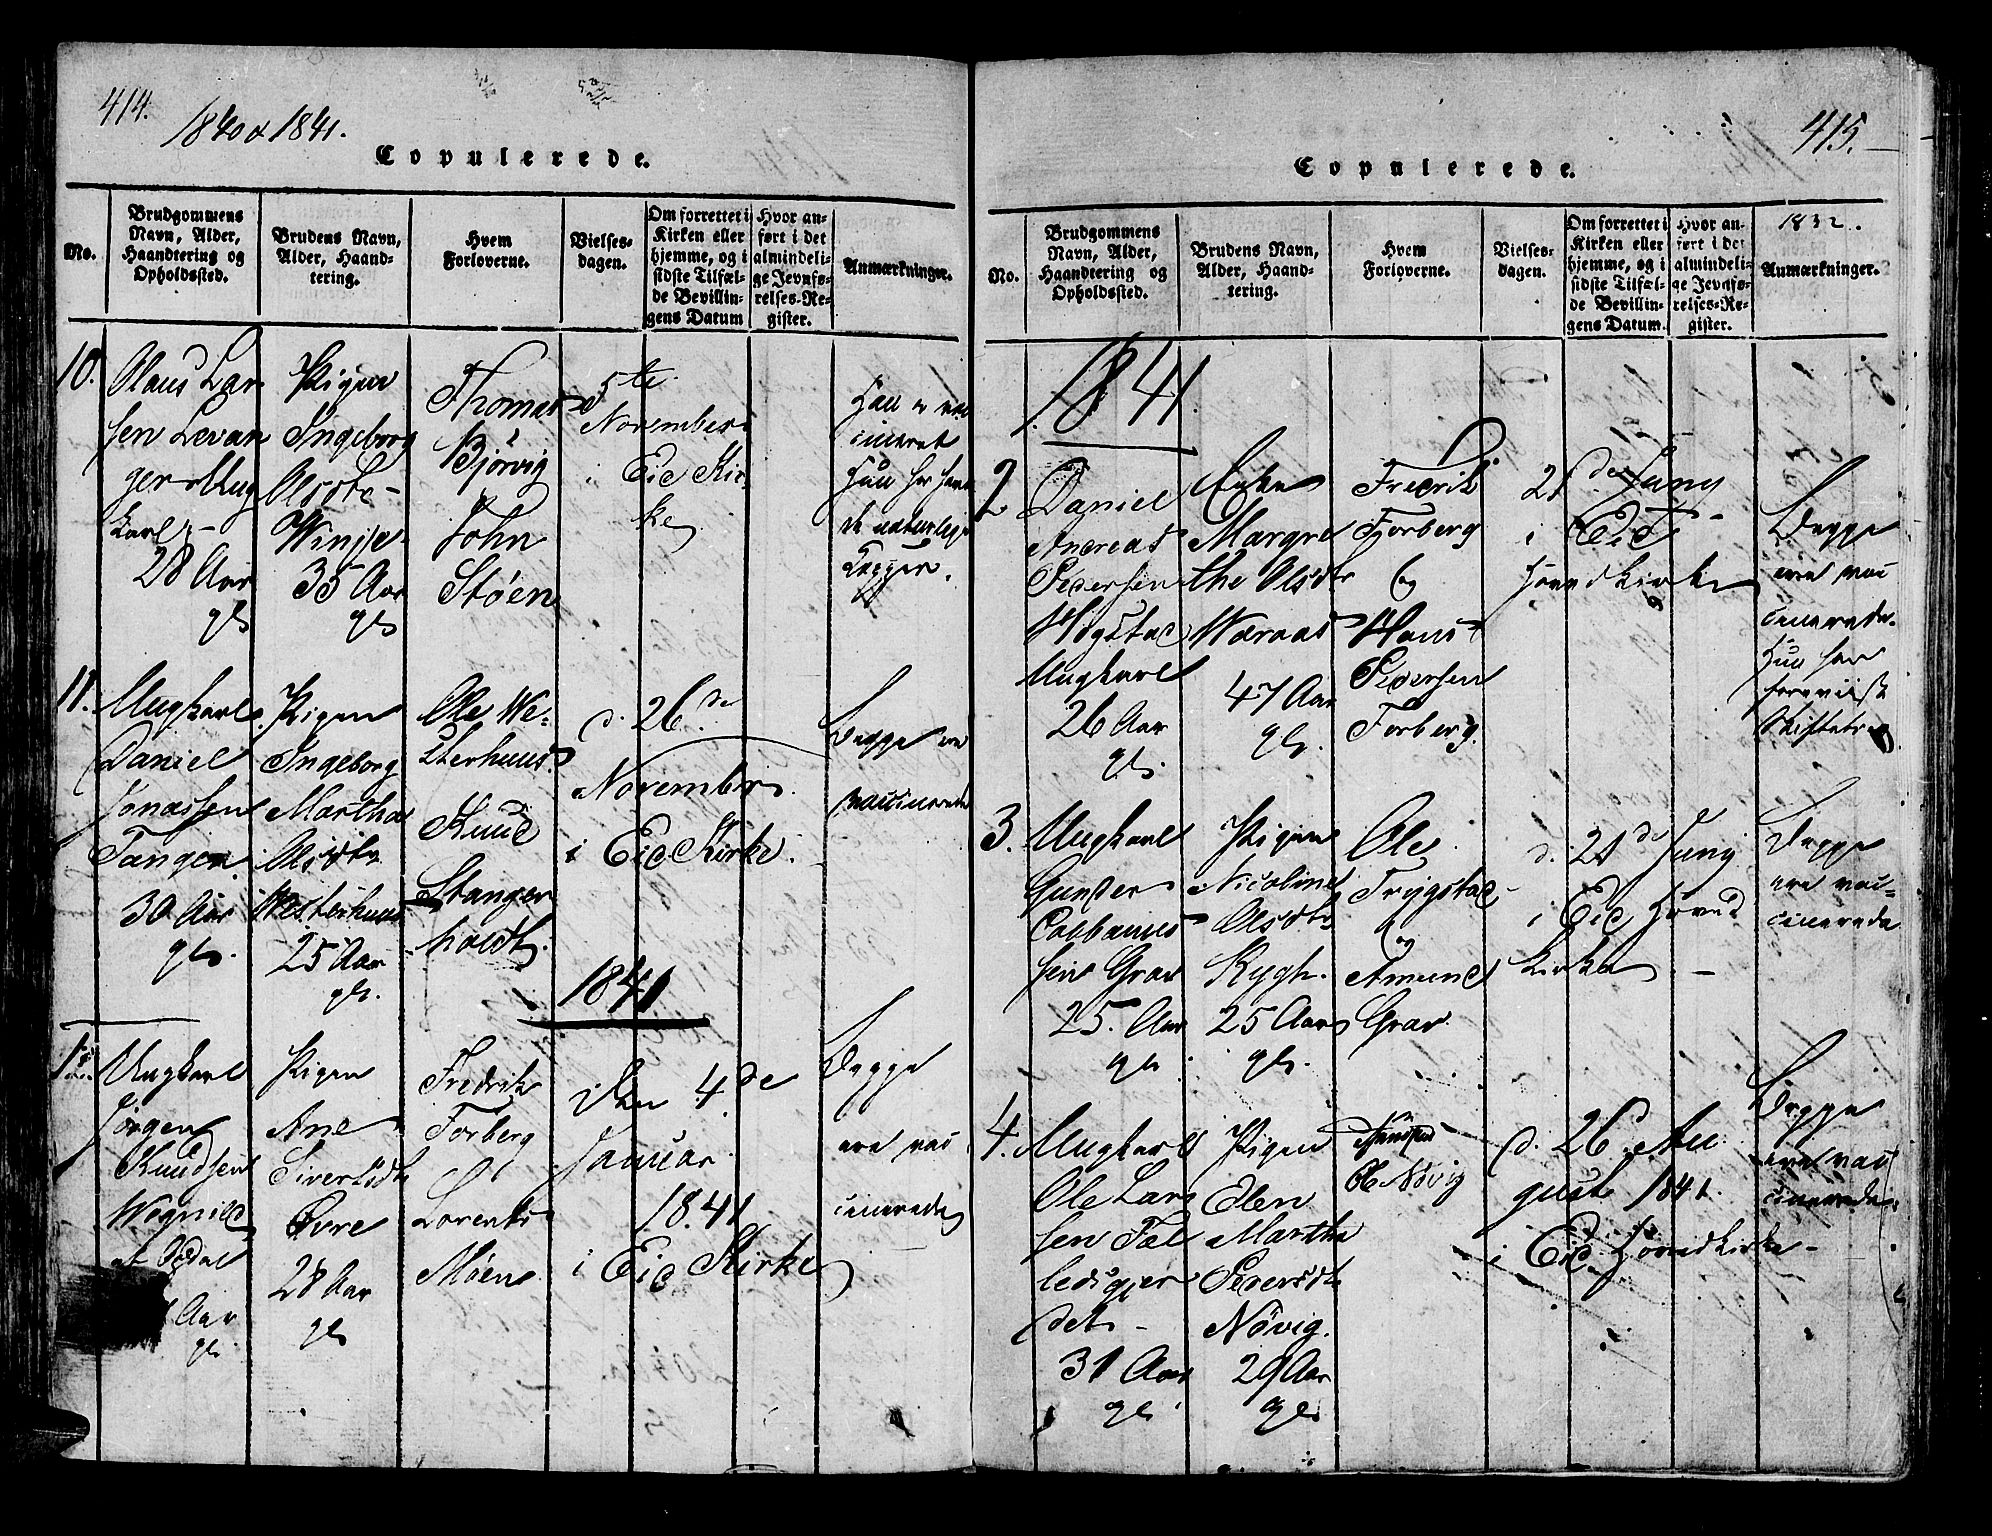 414.
1840 & 1841.
Copulerede.
No.
Brudgommens
Navn, Alder,
Haandtering og
Opholdssted.
Brudens Navn,
Alder, Haand-
tering.
Hvem
Forloverne.
Vielses-
dagen.
Om forrettet i
Kirken eller
hjemme, og i
sidste Tilfæl-
de Bevillin-
gens Datum
Hvor an-
ført i det
almindeli-
ge Jevnfø-
relses-Re-
gister.
Anmærkninger.
10.
Olaus Lar
sen Levan
ger Ung
karl -
28 Aar
gl
Pigen
Ingeborg
Olsdtr -
Winje
35 Aar
gl
Thomas
Bjørvig
John
Støen
5te
November
i Eid Kir
ke
Han er vac
cineret
Hun har havt
de naturlige
Kopper.
11.
Ungkarl
Daniel
Jonassen
Tangen
30 Aar
gl.
Pigen
Ingeborg
Martha
Olsdtr
Westerhuus
25 Aar
gl.
Ole We-
sterhuus
Knud
Stanger
holdt.
d. 26de
November
i Eid Kirke.
Begge ere
vaccinerede
1841
1.
Ungkarl
Jørgen
Knudsen
Wognild
Aar
gl.
Pigen
Ane
Sivertsdtr
Øvre
28 Aar
gl
Fredrik
Forberg
Lorents
Moen
Den 4de
Januar
1841
i Eid Kirke
Begge
ere vac
cinerede
415.
Copulerede.
No.
Brudgommens
Navn, Alder,
Haandtering og
Opholdssted.
Brudens Navn,
Alder, Haand-
tering.
Hvem
Forloverne.
Vielses-
dagen.
Om forrettet i
Kirken eller
hjemme, og i
sidste Tilfæl-
de Bevillin-
gens Datum.
Hvor an-
ført i det
almindeli-
ge Jevnfø-
relses-Re-
gister.
1832.
Anmærkninger.
1841.
2
Daniel
Andreas
Pedersen
Hogstad
Ungkarl
26 Aar
gl.
Enke
Margre
the Olsdtr
Woraas
47 Aar
gl.
Fredrik
Forberg
og
Hans
Pedersen
Forberg.
21de Juny
i Eid
Hovedkirke
Begge
ere vac
cinerede.
Hun har
foreviist
Skiftebrev
3.
Ungkarl
Gunder
sen Grav
25. Aar
gl.
Pigen
Nicoline
Olsdtr
Rygh.
25 Aar
gl.
Ole
Trygstad
og
Amund
Grav.
d. 21de Juny
i Eid Hoved
kirke. -
Begge
ere vac-
cinerede
4.
Ungkarl
Ole Lars
sen Tal
ledsgjer
det -
31 Aar
gl.
Pigen
Elen
Martha
Pedersdtr
Nøvig.
29 Aar
gl.
Ole Nøvig
d. 26. Au
gust 1841.
i Eid Hovedkirke -
Begge
ere vac
cinerede.